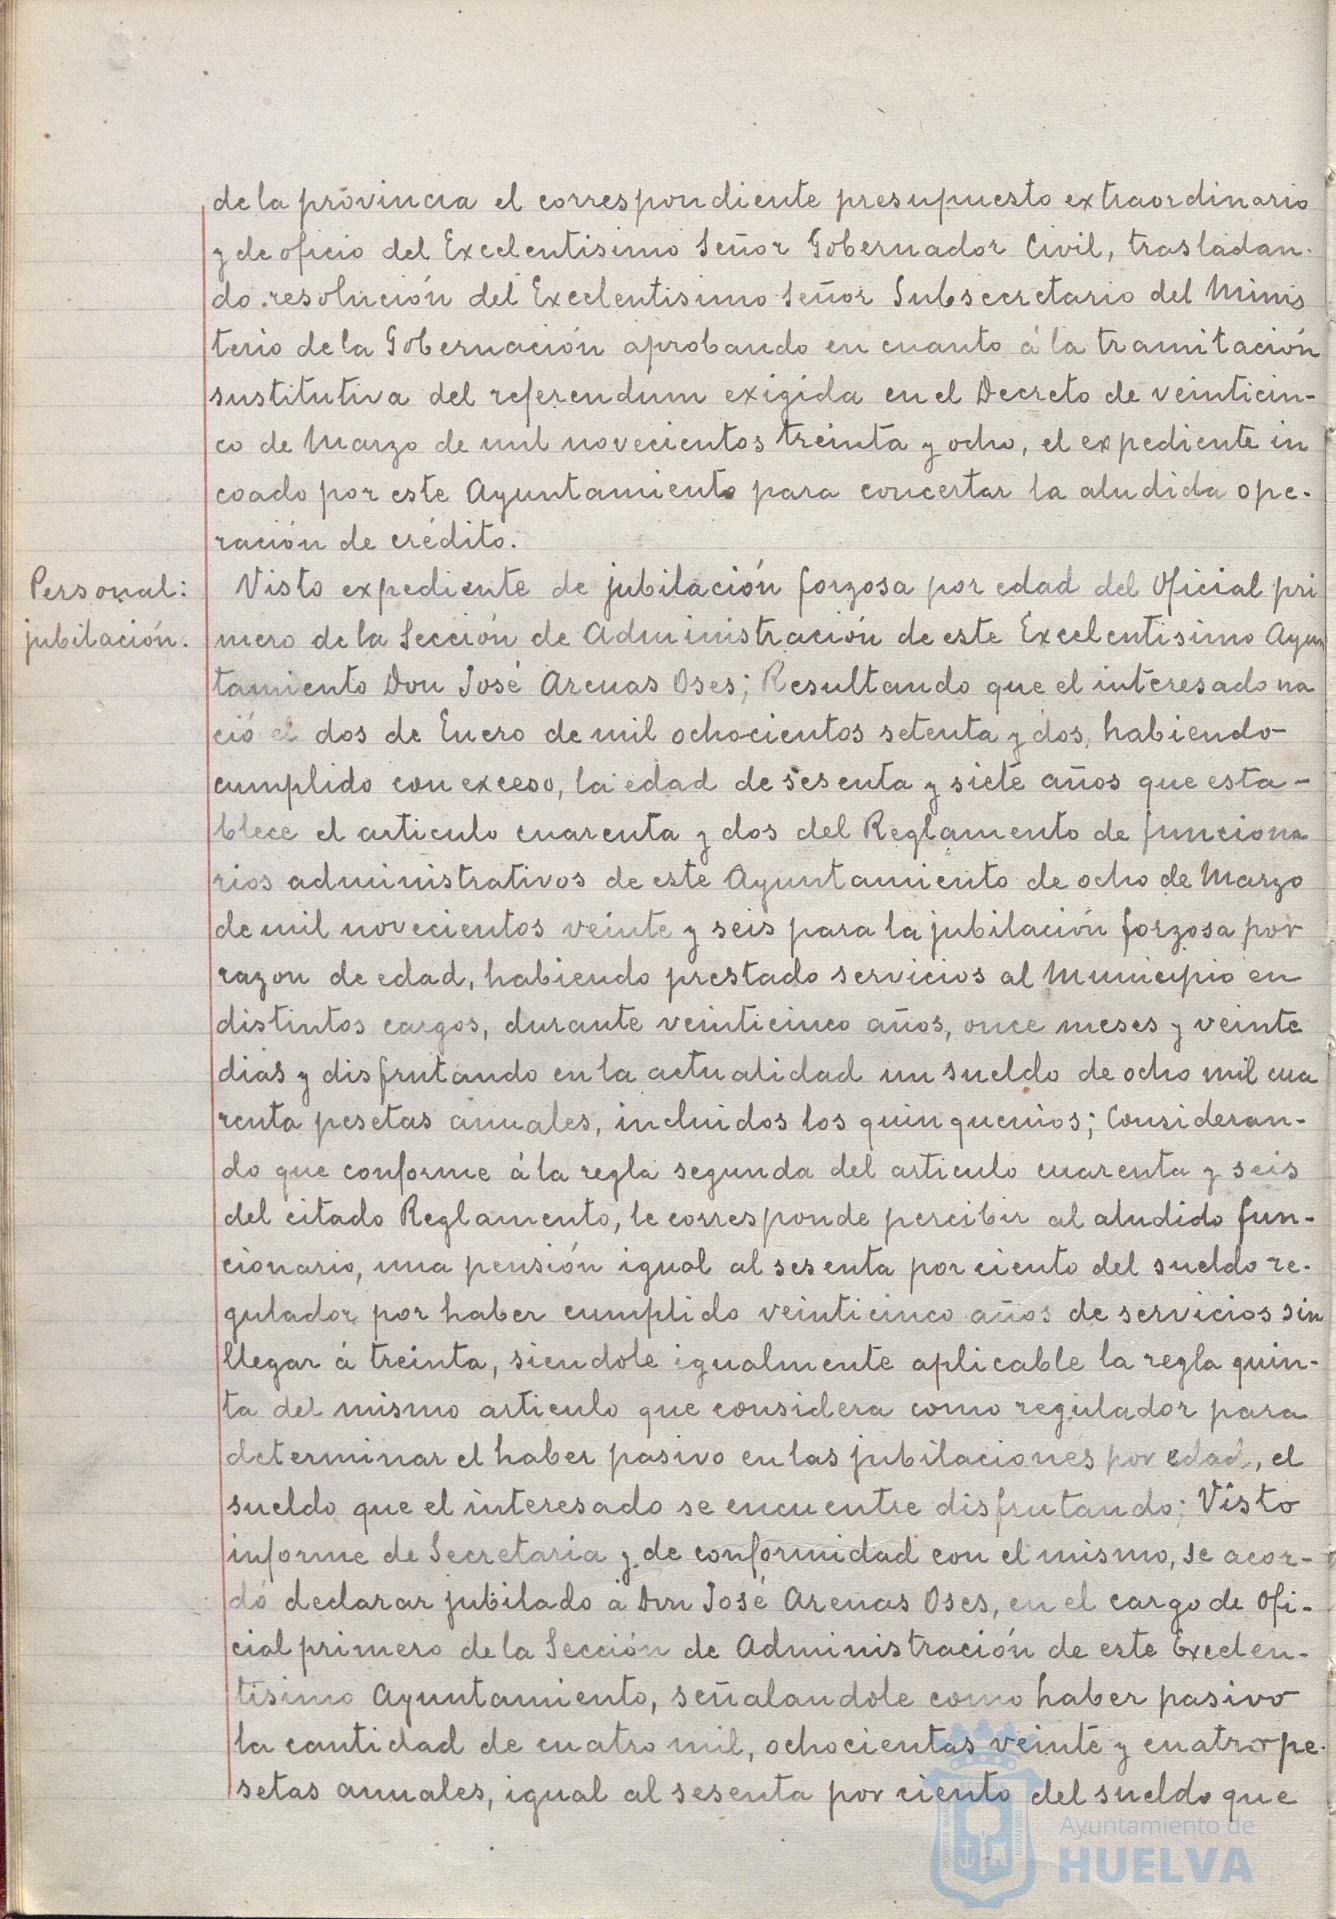 de la provincia el correspondiente presupuesto extraordinario
y de oficio del Excelentisimo Señor Gobernador Civil, trasladan-
do resolución del Excelentisimo Señor Subsecretario del Minis
terio de la Gobernación aprobando en cuanto á la tramitación
sustitutiva del referendum exigida en el Decreto de veinticin-
co de Marzo de mil novecientos treinta y ocho, el expediente in
coado por este Ayuntamiento para concertar la aludida ope-
ración de crédito.
Personal:
jubilación.
Visto expediente de jubilación forzosa por edad del Oficial pri
mero de la Sección de Administración de este Excelentisimo Ayun
tamiento Don José Arenas Oses; Resultando que el interesado na
ció el dos de Enero de mil ochocientos setenta y dos, habiendo
cumplido con exceso, la edad de sesenta y siete años que esta-
blece el articulo cuarenta y dos del Reglamento de funciona
rios administrativos de este Ayuntamiento de ocho de Marzo
de mil novecientos veinte y seis para la jubilación forzosa por
razon de edad, habiendo prestado servicios al Municipio en
distintos cargos, durante veinticinco años, once meses y veinte
dias y disfrutando en la actualidad un sueldo de ocho mil cua
renta pesetas anuales, incluidos los quinquenios; Consideran-
do que conforme á la regla segunda del articulo cuarenta y seis
del citado Reglamento, le corresponde percibir al aludido fun-
cionario, una pensión igual al sesenta por ciento del sueldo re-
gulador, por haber cumplido veinticinco años de servicios sin
llegar á treinta, siendole igualmente aplicable la regla quin-
ta del mismo articulo que considera como regulador para
determinar el haber pasivo en las jubilaciones por edad, el
sueldo que el interesado se encuentre disfrutando; Visto
informe de Secretaria y de conformidad con el mismo, se acor-
dó declarar jubilado a Don José Arenas Oses, en el cargo de Ofi-
cial primero de la Sección de Administración de este Excelen-
tisimo Ayuntamiento, señalandole como haber pasivo
la cantidad de cuatro mil, ochocientas veinte y cuatro pe-
setas anuales, igual al sesenta por ciento del sueldo que
Ayuntamiento de
HUELVA